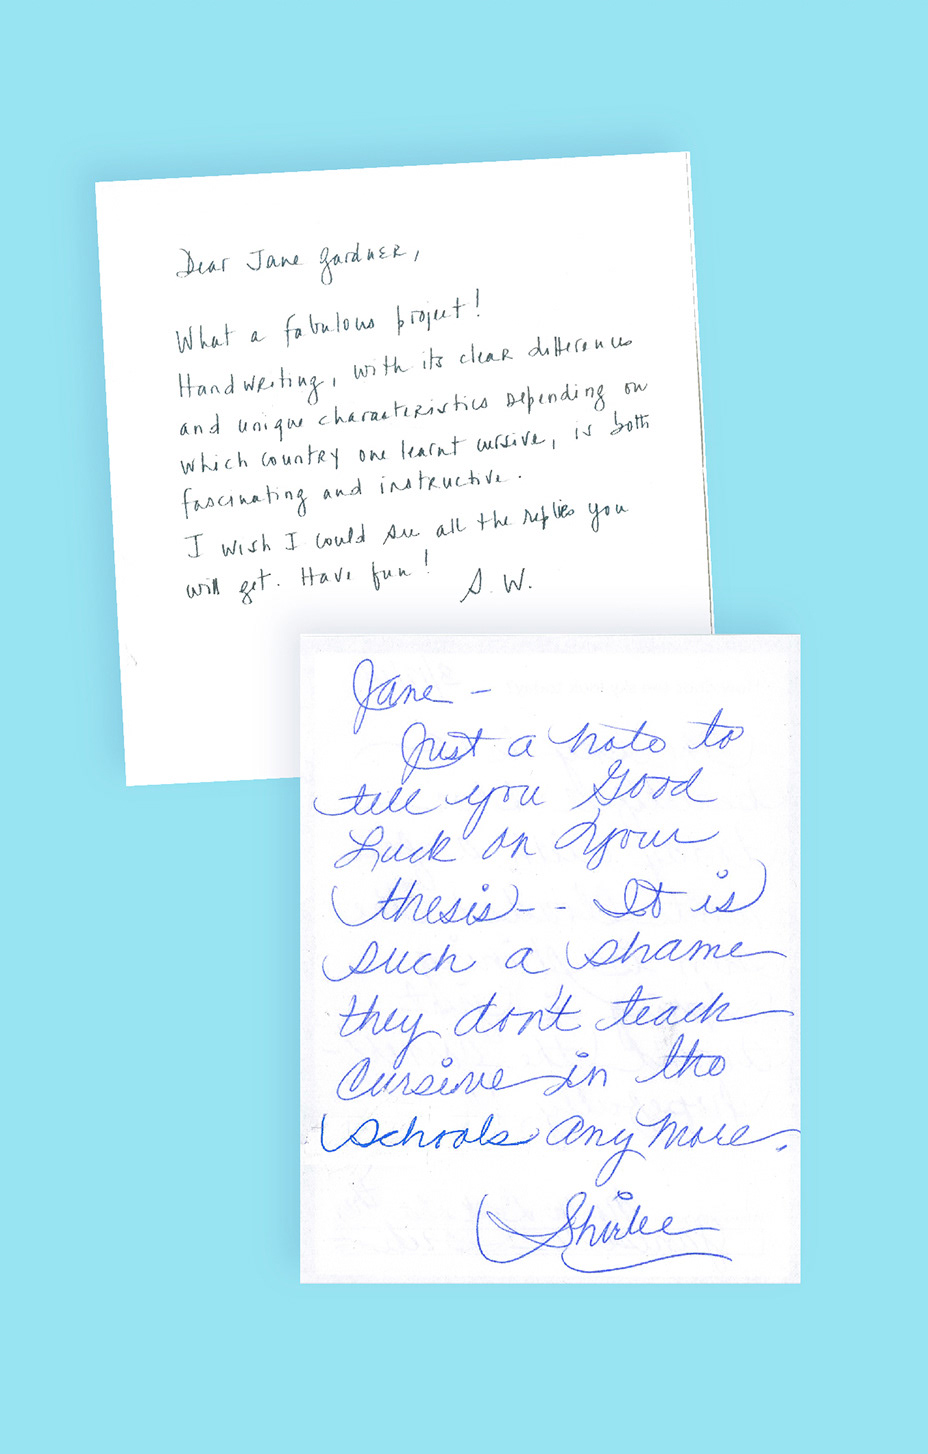 Dear Jane Gardner,
What a fabulous project!
Handwriting, with its clear differences
and unique characteristics depending on
which country one learnt cursive, is both
fascinating and instructive.
I wish I could see all the replies you
will get. Have fun!
S. W.
Jane -
Just a note to
tell you Good
Luck on your
thesis - - It is
such a shame
they don't teach
Cursive in the
schools any more.
Shirlee